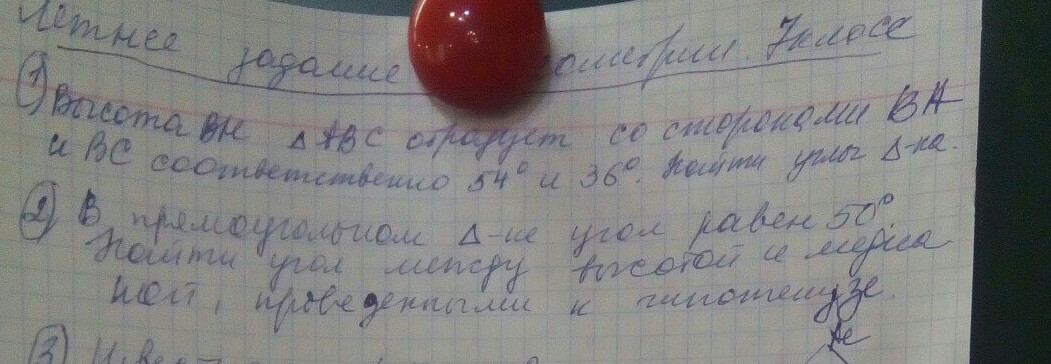 Летнее задание ометрии. 7 класс
1) Высота BH Δ ABC образует со сторонами BA
и BC соответственно 54° и 36°. Найти углы Δ-ка.
2) В прямоугольном Δ-ке угол равен 50°.
Найти угол между высотой и медиа
ной, проведенными к гипотенузе.
3)